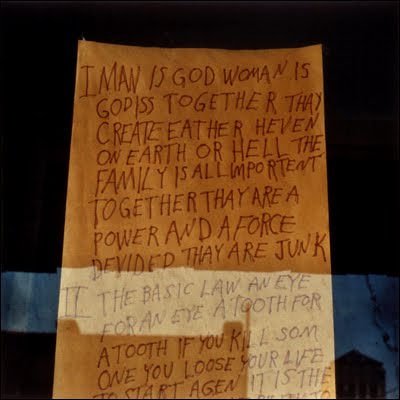 I MAN IS GOD WOMAN IS
GODISS TOGETHER THAY
CREATE EATHER HEVEN
ON EARTH OR HELL THE
FAMILY IS ALL IMPORTENT
TOGETHER THAY ARE A
POWER AND A FORCE
DEVIDED THAY ARE JUNK
II THE BASIC LAW AN EYE
FOR AN EYE A TOOTH FOR
A TOOTH IF YOU KILL SOM
ONE YOU LOOSE YOUR LIFE
TO START AGEN IT IS THE